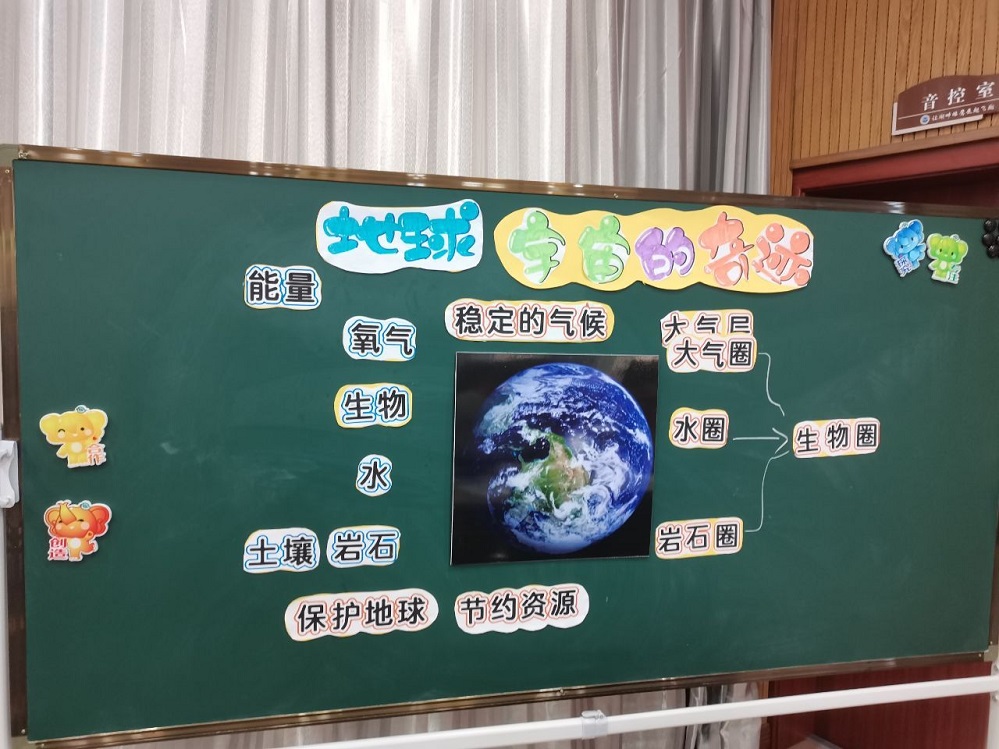 音控室
地球 宇宙的奇迹
能量
稳定的气候
氧气
大气层
大气圈
生物
水圈
生物圈
水
土壤 岩石
岩石圈
保护地球 节约资源
创造